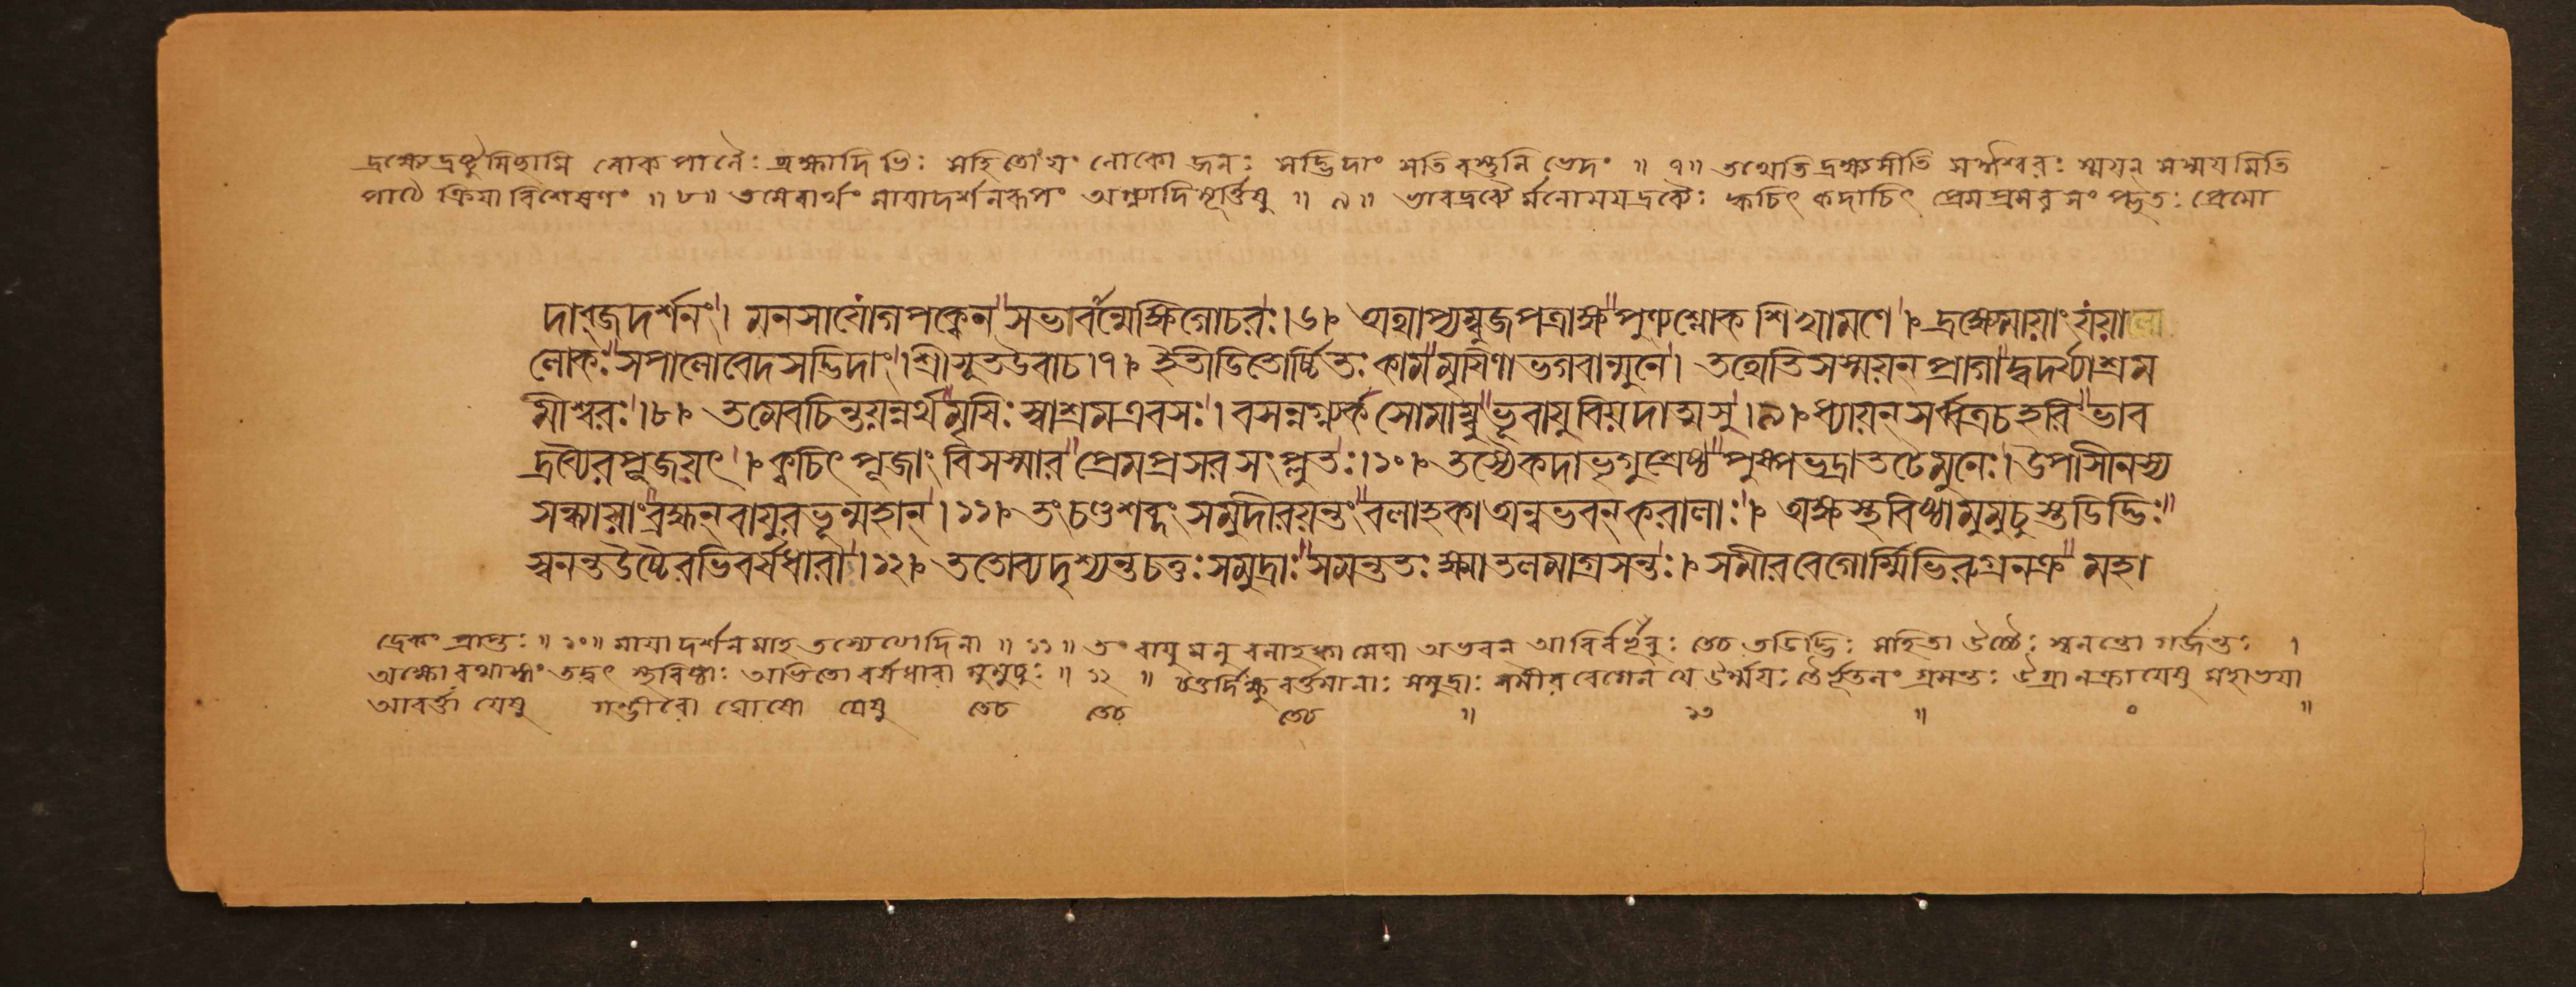 দ্রক্ষ্যে দ্রষ্টুমিচ্ছামি লোক পালৈঃ ব্রহ্মাদিভিঃ সহিতোঽয়ং লোকো জনঃ সদ্ভিদাং সতি বস্তুনি ভেদং ॥ ৭॥ তথেতি দ্রক্ষ্যসীতি সঈশ্বরঃ স্ময়ন সস্ময়মিতি
পাঠে ক্রিয়া বিশেষণং ॥ ৮॥ তমেবার্থং মায়াদর্শনরূপং অগ্ন্যাদিমূর্ত্তিষু ॥ ৯॥ ভাবদ্রব্যৈর্মনোময়দ্রব্যৈঃ ক্বচিৎ কদাচিৎ প্রেমপ্রসর সং প্লুতঃ প্রেম্নো
দাব্জদর্শনং। মনসাযোগপক্বেন সভাবাংন্মেঽক্ষিগোচরঃ।৬। অথাপ্যম্বুজপত্রাক্ষ পুণ্যশ্লোক শিখামণে। দ্রক্ষ্যেমায়াং যয়া
লোকঃ সপালোবেদ সদ্ভিদাং। শ্রীসূতউবাচ।৭। ইতীডিতোর্চ্চিতঃ কামমৃষিণা ভগবান্মুনে। তথেতিসস্ময়ন প্রাগাদ্বদর্য্যাশ্রম
মীশ্বরঃ।৮। তমেবচিন্তয়ন্নর্থমৃষিঃ স্বাশ্রমএবসঃ। বসন্নগ্ন্যর্ক সোমাম্বু ভূবায়ুবিয়দাত্মসু।৯। ধ্যায়ন সর্ব্বত্রচহরিং ভাব
দ্রব্যৈরপূজয়ৎ। ক্বচিৎ পূজাং বিসস্মার প্রেমপ্রসরসংপ্লুতঃ।১০। তস্যৈকদাভৃগুশ্রেষ্ঠ পুষ্পভদ্রাতটেমুনেঃ। উপাসীনস্য
সন্ধ্যায়াং ব্রহ্মন বায়ুরভূন্মহান্।১১। তং চণ্ডশব্দং সমুদীরয়ন্তং বলাহকা অন্বভবন করালাঃ। অক্ষস্থবিষ্ঠামুমুচুস্তডিদ্ভিঃ
স্বনন্তউচ্চৈরভিবর্ষধারা।১২। ততোব্যদৃশ্যন্তচতুঃসমুদ্রাঃ সমন্ততঃ ক্ষ্মাতলমাগ্রসন্তঃ। সমীরবেগোর্ম্মিভিরুগ্রনক্র মহা
দ্রেকং প্রাপ্তঃ ॥ ১০॥ মায়া দর্শনমাহ তস্যেত্যাদিনা ॥ ১১॥ তং বায়ুমনু বলাহকা মেঘা অভবন আবির্বভূবুঃ তেচ তডিদ্ভিঃ সহিতা উচ্চৈঃ স্বনন্তো গর্জন্তঃ ।
অক্ষো রথাঙ্গং তদ্বৎ স্থবিষ্ঠাঃ অভিতো বর্ষধারা মুমুচুঃ ॥ ১২ ॥ চতুর্দিক্ষু বর্ত্তমানাঃ সমুদ্রাঃ সমীর বেগেন যে উর্ম্ময়ঃ তৈর্ভূতলং গ্রসন্তঃ উগ্রা নক্রা যেষু মহাভয়া
আবর্ত্তা যেষু গম্ভীরো ঘোষো যেষু তেচ তেচ তেচ ॥ ১৩ ॥ ০ ॥